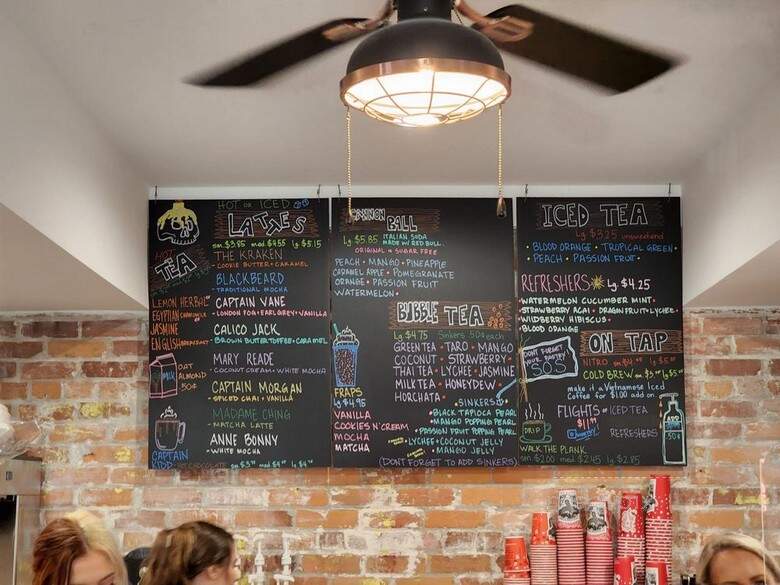 HOT or ICED
LATTES
sm $3.95 med $4.55 lg $5.15
THE KRAKEN
- COOKIE BUTTER + CARAMEL
BLACKBEARD
- TRADITIONAL MOCHA
CAPTAIN VANE
- LONDON FOG + EARL GREY + VANILLA
CALICO JACK
- BROWN BUTTER TOFFEE + CARAMEL
MARY READE
- COCONUT CREAM + WHITE MOCHA
CAPTAIN MORGAN
- SPICED CHAI + VANILLA
MADAME CHING
- MATCHA LATTE
ANNE BONNY
- WHITE MOCHA
HOT
TEA
LEMON HERBAL
EGYPTIAN CHAMOMILE
JASMINE
ENGLISH BREAKFAST
MILK
OAT
ALMOND
50¢
CAPTAIN
KIDD HOT CHOCOLATE
CANNON
BALL
lg $5.85 ITALIAN SODA
MADE w/ RED BULL
ORIGINAL or SUGAR FREE
PEACH • MANGO • PINEAPPLE
CARAMEL APPLE • POMEGRANATE
ORANGE • PASSION FRUIT
WATERMELON •
BUBBLE TEA
lg $4.75 Sinkers 50¢ each
GREEN TEA • TARO • MANGO
COCONUT • STRAWBERRY
THAI TEA • LYCHEE • JASMINE
MILK TEA • HONEYDEW •
HORCHATA •
• SINKERS
• BLACK TAPIOCA PEARL
• MANGO POPPING PEARL
• PASSION FRUIT POPPING PEARL
• LYCHEE • COCONUT JELLY
• MANGO JELLY
(DON'T FORGET TO ADD SINKERS)
FRAPS
lg $4.95
VANILLA
COOKIES N' CREAM
MOCHA
MATCHA
ICED TEA
lg $3.25 unsweetened
• BLOOD ORANGE • TROPICAL GREEN •
PEACH • PASSION FRUIT •
REFRESHERS lg $4.25
WATERMELON CUCUMBER MINT •
STRAWBERRY ACAI • DRAGON FRUIT + LYCHEE •
WILDBERRY HIBISCUS •
• BLOOD ORANGE
DON'T FORGET
YOUR PASTRY
SOS
ON TAP
NITRO
COLD BREW
make it a Vietnamese Iced
Coffee for $1.00 add on.
FLIGHTS - ICED TEA
REFRESHERS
DRIP
WALK THE PLANK
sm $2.00 med $2.45 lg $2.85
50¢